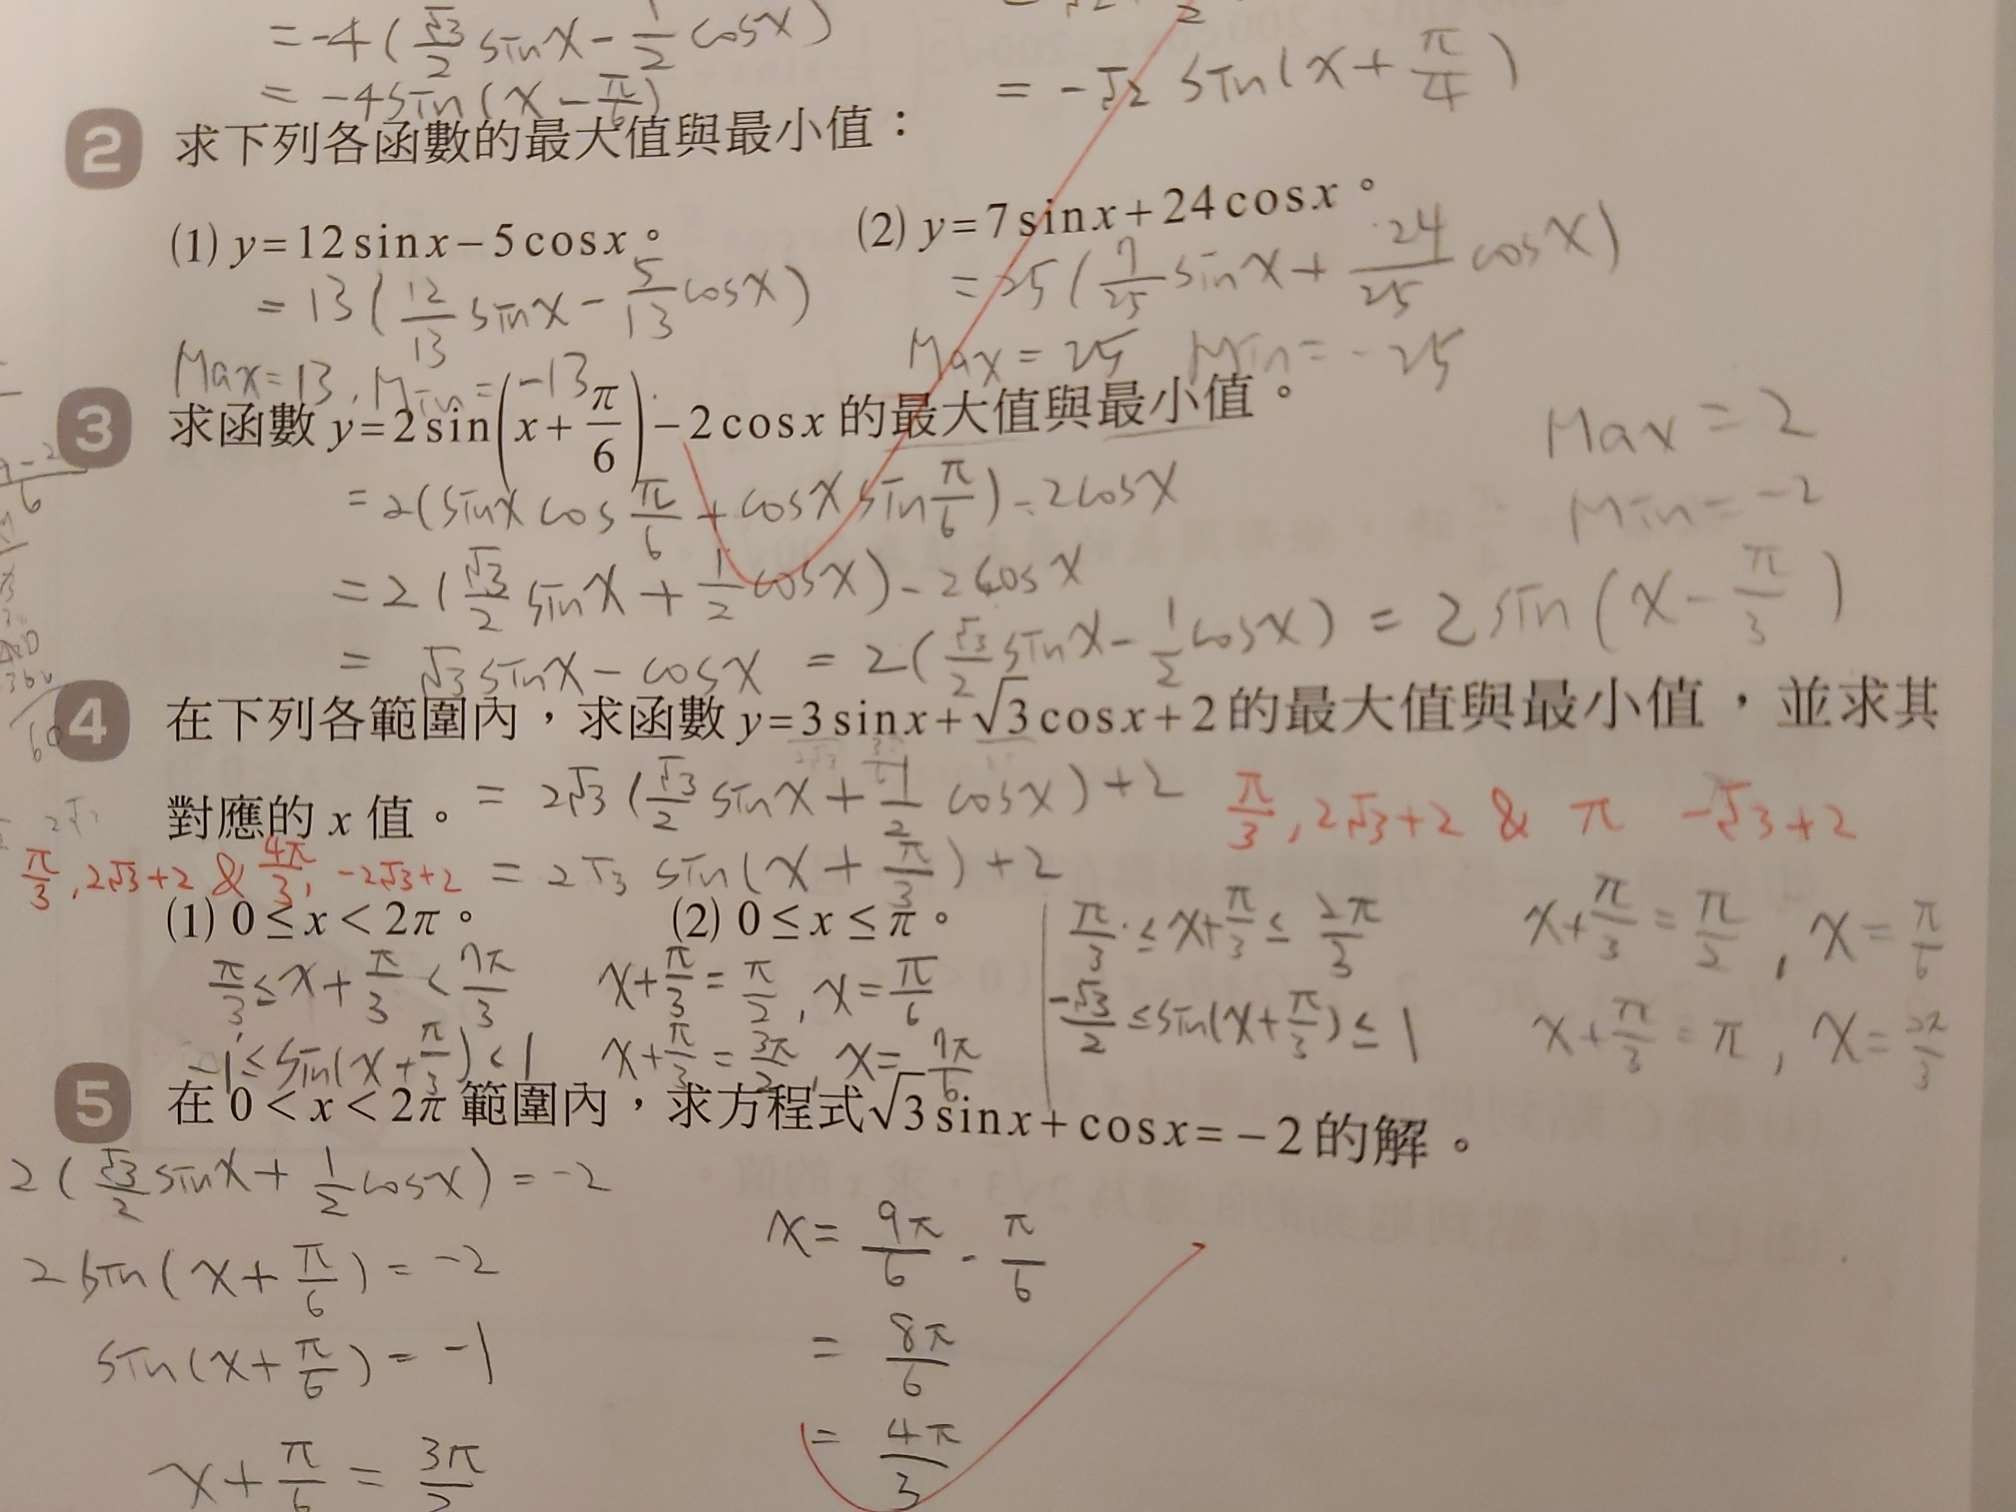 =-4(√3/2 sinx-1/2 cosx)
= -4sin(x-π/6)
= -√2 sin(x+π/4)
2 求下列各函數的最大值與最小值：
(1) y=12sinx-5cosx。
(2) y=7sinx+24cosx。
= 13(12/13 sinx-5/13 cosx)
= 25(7/25 sinx+24/25 cosx)
Max=13, Min=-13
Max=25 Min=-25
3 求函數 y=2sin(x+π/6)-2cosx 的最大值與最小值。
Max=2
Min=-2
=2(sinx cos π/6 + cosx sin π/6)-2cosx
=2(√3/2 sinx+1/2 cosx)-2cosx
= √3 sinx-cosx = 2(√3/2 sinx-1/2 cosx) = 2sin(x-π/3)
4 在下列各範圍內，求函數 y=3sinx+√3cosx+2 的最大值與最小值，並求其
對應的 x 值。 = 2√3(√3/2 sinx+1/2 cosx)+2
π/3, 2√3+2 & π -√3+2
π/3, 2√3+2 & 4π/3, -2√3+2
= 2√3 sin(x+π/3)+2
(1) 0≤x<2π。
(2) 0≤x≤π。
π/3≤x+π/3<7π/3
x+π/3=π/2, x=π/6
-1≤sin(x+π/3)<1
x+π/3=3π/2, x=7π/6
π/3≤x+π/3≤2π/3
x+π/3=π/2, x=π/6
-√3/2≤sin(x+π/3)≤1
x+π/3=π, x=2π/3
5 在 0<x<2π 範圍內，求方程式√3sinx+cosx=-2 的解。
2(√3/2 sinx+1/2 cosx)=-2
2sin(x+π/6)=-2
sin(x+π/6)=-1
x+π/6=3π/2
x=9π/6-π/6
=8π/6
=4π/3